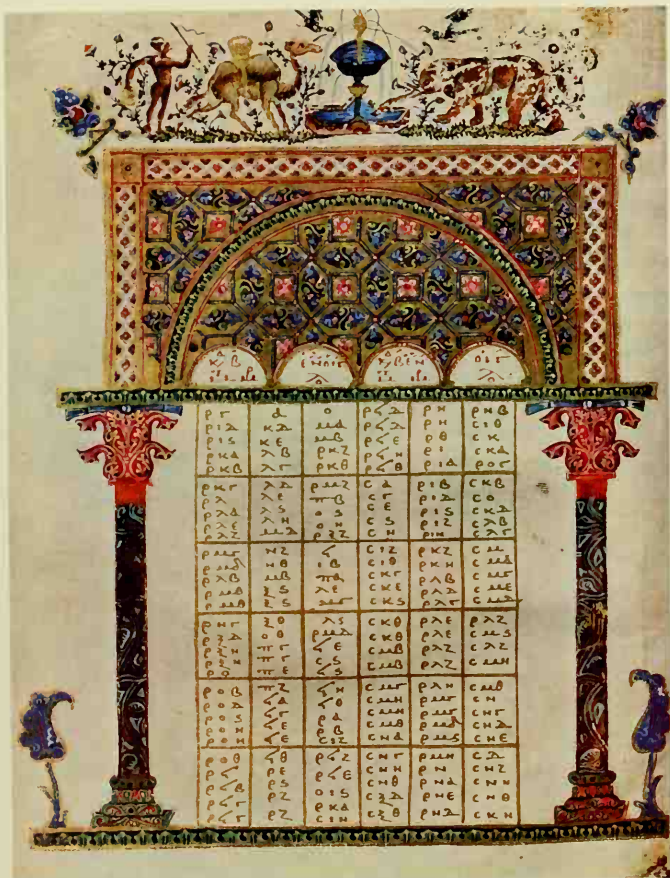 ργ α ο ρϟδ ρη ρνβ
ριδ κδ μα ρϟδ ρη σιθ
ρις κε μβ ρϟε ρθ σκ
ρκα λβ ρκζ ρϟη ρι σκα
ρκβ λγ ρκθ ρϟθ ρια ρογ
ρκγ λδ ρμζ σα ριβ σκβ
ρλ λε πβ σγ ριδ σο
ρλα λς ος σε ρις σκδ
ρλε λη οη σς ριζ σλβ
ρλζ μδ ρξζ ση ριη σλγ
ρμγ νζ ϟ σιζ ρκζ σμ
ρμδ νθ ιβ σιθ ρκη σμδ
σκγ σμγ
ρμη ξς λε σκε ρλδ σμε
ρμθ ξς μγ σκς ρλγ σμδ
ξθ λς σκθ ρλε ρλζ
ρξδ οθ ρμδ σκθ ρλε σμς
ρξη πγ ϟε σμβ ρλζ σλζ
ρξη πγ σς σμβ ρλζ σμη
ρο πε ϟς
ροβ πζ ϟη σμγ ρλη σμθ
ροδ ϟα ϟθ σμη ρμγ
ρος ϟγ ρα σμη ρμγ σνγ
ροη ϟε ρβ σμθ ρμδ σνδ
ροη ϟε σιζ σνα ρμς σνε
ροθ ϟθ ρϟζ σνγ ρμη σδ
ρϟ ρε ρϟε σνη ρν σνζ
ρϟβ ρς οις σνθ ρνα σνη
ρϟγ ρζ ρκα σξδ ρνε σνθ
ρϟγ ρζ σιη σξθ ρνδ σκη